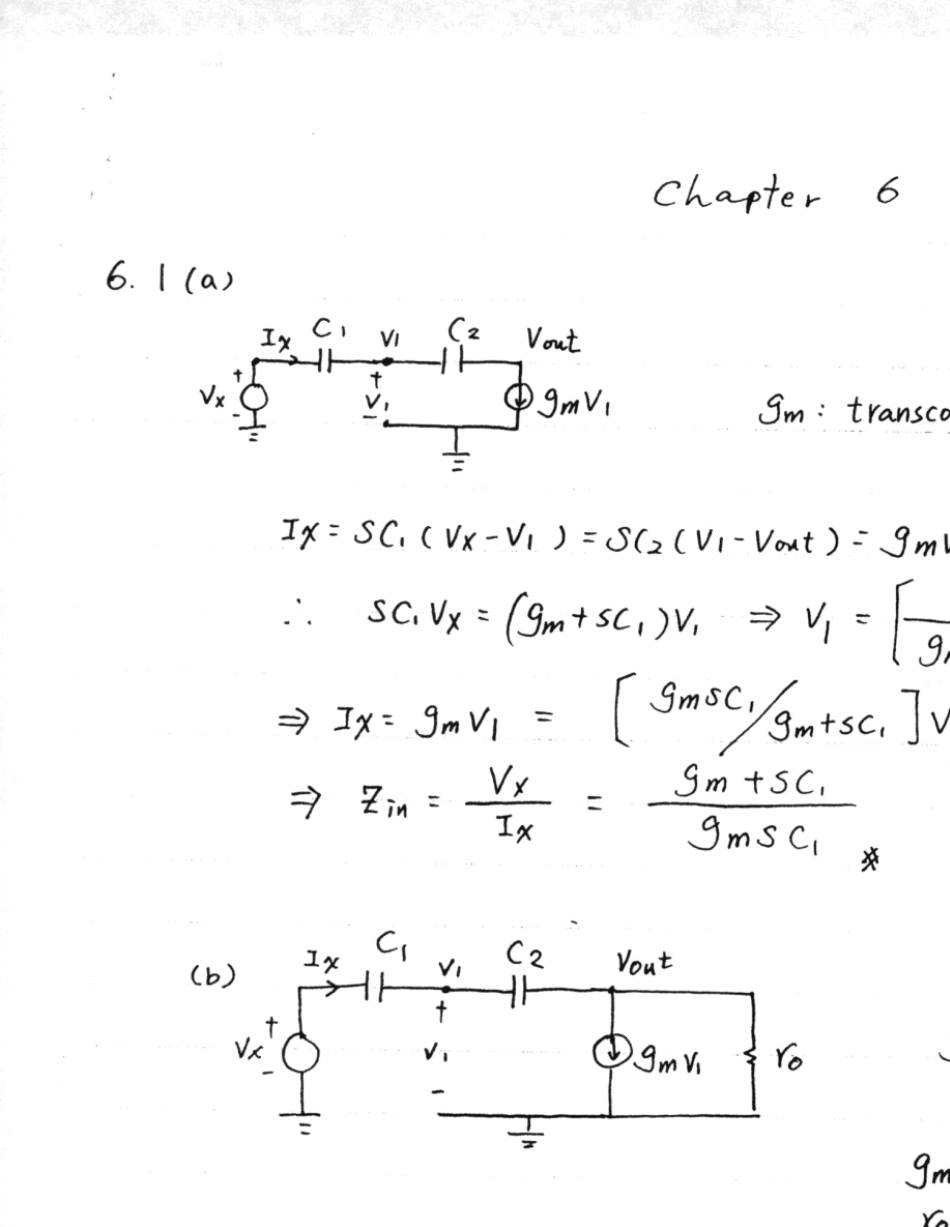 Chapter 6
6.1 (a)
Ix C1 V1 C2 Vout
+ +
Vx V1 gmV1
- -
gm : transco
Ix = SC1 ( Vx - V1 ) = SC2 ( V1 - Vout ) = gmV
∴ SC1 Vx = (gm + SC1) V1 ⇒ V1 = [ g
⇒ Ix = gm V1 = [ gmSC1 / gm + SC1 ] V
⇒ Zin = Vx / Ix = gm + SC1 / gm S C1 *
(b) Ix C1 V1 C2 Vout
+ +
Vx V1 gm V1 ro
- -
gm
ro